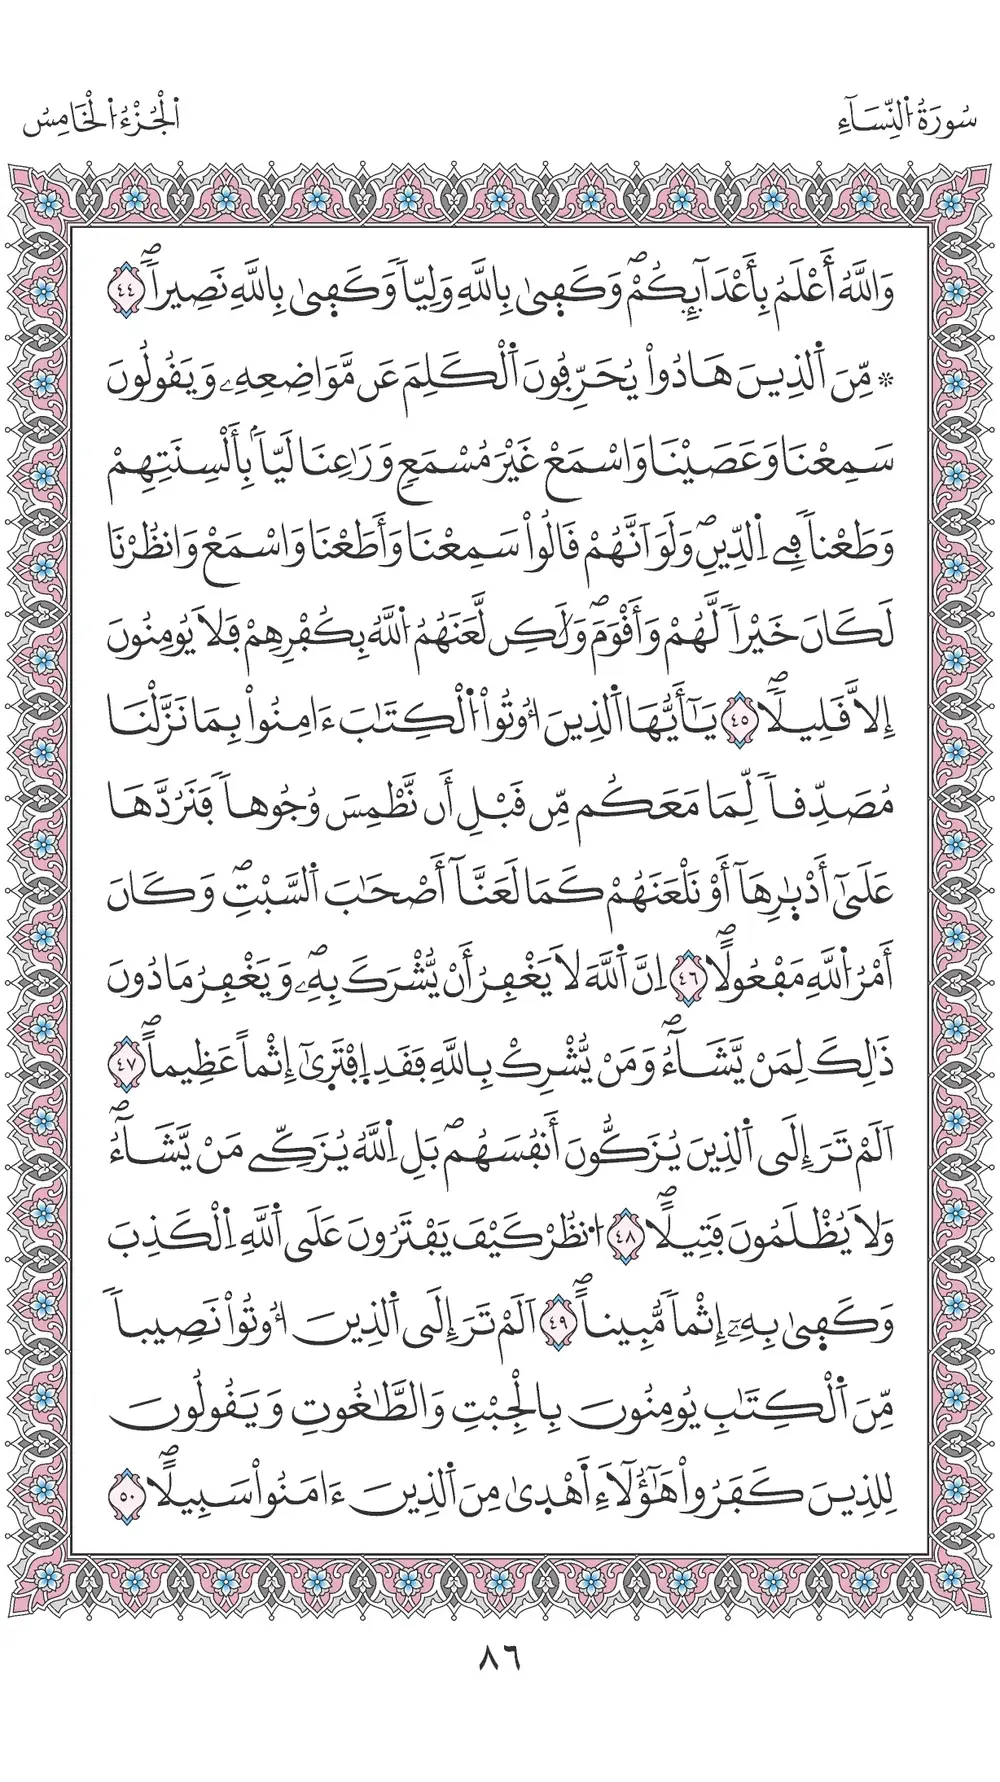 سُورَةُ اُ۬لنِّسَآءِ
اَ۬لْجُزْءُ اُ۬لْخَامِسُ
وَاللَّهُ أَعْلَمُ بِأَعْدَآئِكُمْۖ وَكَف۪ىٰ بِاللَّهِ وَلِيّاٗ وَكَف۪ىٰ بِاللَّهِ نَصِيراٗۖ ٤٤
* مِّنَ اَ۬لذِينَ هَادُواْ يُحَرِّفُونَ اَ۬لْكَلِمَ عَن مَّوَاضِعِهِۦ وَيَقُولُونَ
سَمِعْنَا وَعَصَيْنَا وَاسْمَعْ غَيْرَ مُسْمَعٖ وَرَٰعِنَا لَيّاَۢ بِأَلْسِنَتِهِمْ
وَطَعْناٗ فِے اِ۬لدِّينِۖ وَلَوَ اَنَّهُمْ قَالُواْ سَمِعْنَا وَأَطَعْنَا وَاسْمَعْ وَانظُرْنَا
لَكَانَ خَيْراٗ لَّهُمْ وَأَقْوَمَۖ وَلَٰكِن لَّعَنَهُمُ اُ۬للَّهُ بِكُفْرِهِمْ فَلَا يُومِنُونَ
إِلَّا قَلِيلاٗۖ ٤٥ يَٰٓأَيُّهَا اَ۬لذِينَ أُوتُواْ اُ۬لْكِتَٰبَ ءَامِنُواْ بِمَا نَزَّلْنَا
مُصَدِّقاٗ لِّمَا مَعَكُم مِّن قَبْلِ أَن نَّطْمِسَ وُجُوهاٗ فَنَرُدَّهَا
عَلَىٰٓ أَدْبٰ۪رِهَآ أَوْ نَلْعَنَهُمْ كَمَا لَعَنَّآ أَصْحَٰبَ اَ۬لسَّبْتِۖ وَكَانَ
أَمْرُ اُ۬للَّهِ مَفْعُولاًۖ ٤٦ اِنَّ اَ۬للَّهَ لَا يَغْفِرُ أَنْ يُّشْرَكَ بِهِۦۖ وَيَغْفِرُ مَا دُونَ
ذَٰلِكَ لِمَنْ يَّشَآءُۖ وَمَنْ يُّشْرِكْ بِاللَّهِ فَقَدِ اِ۪فْتَر۪ىٰٓ إِثْماً عَظِيماًۖ ٤٧
اَلَمْ تَرَ إِلَى اَ۬لذِينَ يُزَكُّونَ أَنفُسَهُمۖ بَلِ اِ۬للَّهُ يُزَكِّے مَنْ يَّشَآءُۖ
وَلَا يُظْلَمُونَ فَتِيلاًۖ ٤٨ اُ۟نظُرْ كَيْفَ يَفْتَرُونَ عَلَى اَ۬للَّهِ اِ۬لْكَذِبَ
وَكَف۪ىٰ بِهِۦٓ إِثْماٗ مُّبِيناًۖ ٤٩ اَلَمْ تَرَ إِلَى اَ۬لذِينَ أُوتُواْ نَصِيباٗ
مِّنَ اَ۬لْكِتَٰبِ يُومِنُونَ بِالْجِبْتِ وَالطَّٰغُوتِ وَيَقُولُونَ
لِلذِينَ كَفَرُواْ هَٰٓؤُلَآءِ اَهْد۪ىٰ مِنَ اَ۬لذِينَ ءَامَنُواْ سَبِيلاًۖ ٥٠
٨٦